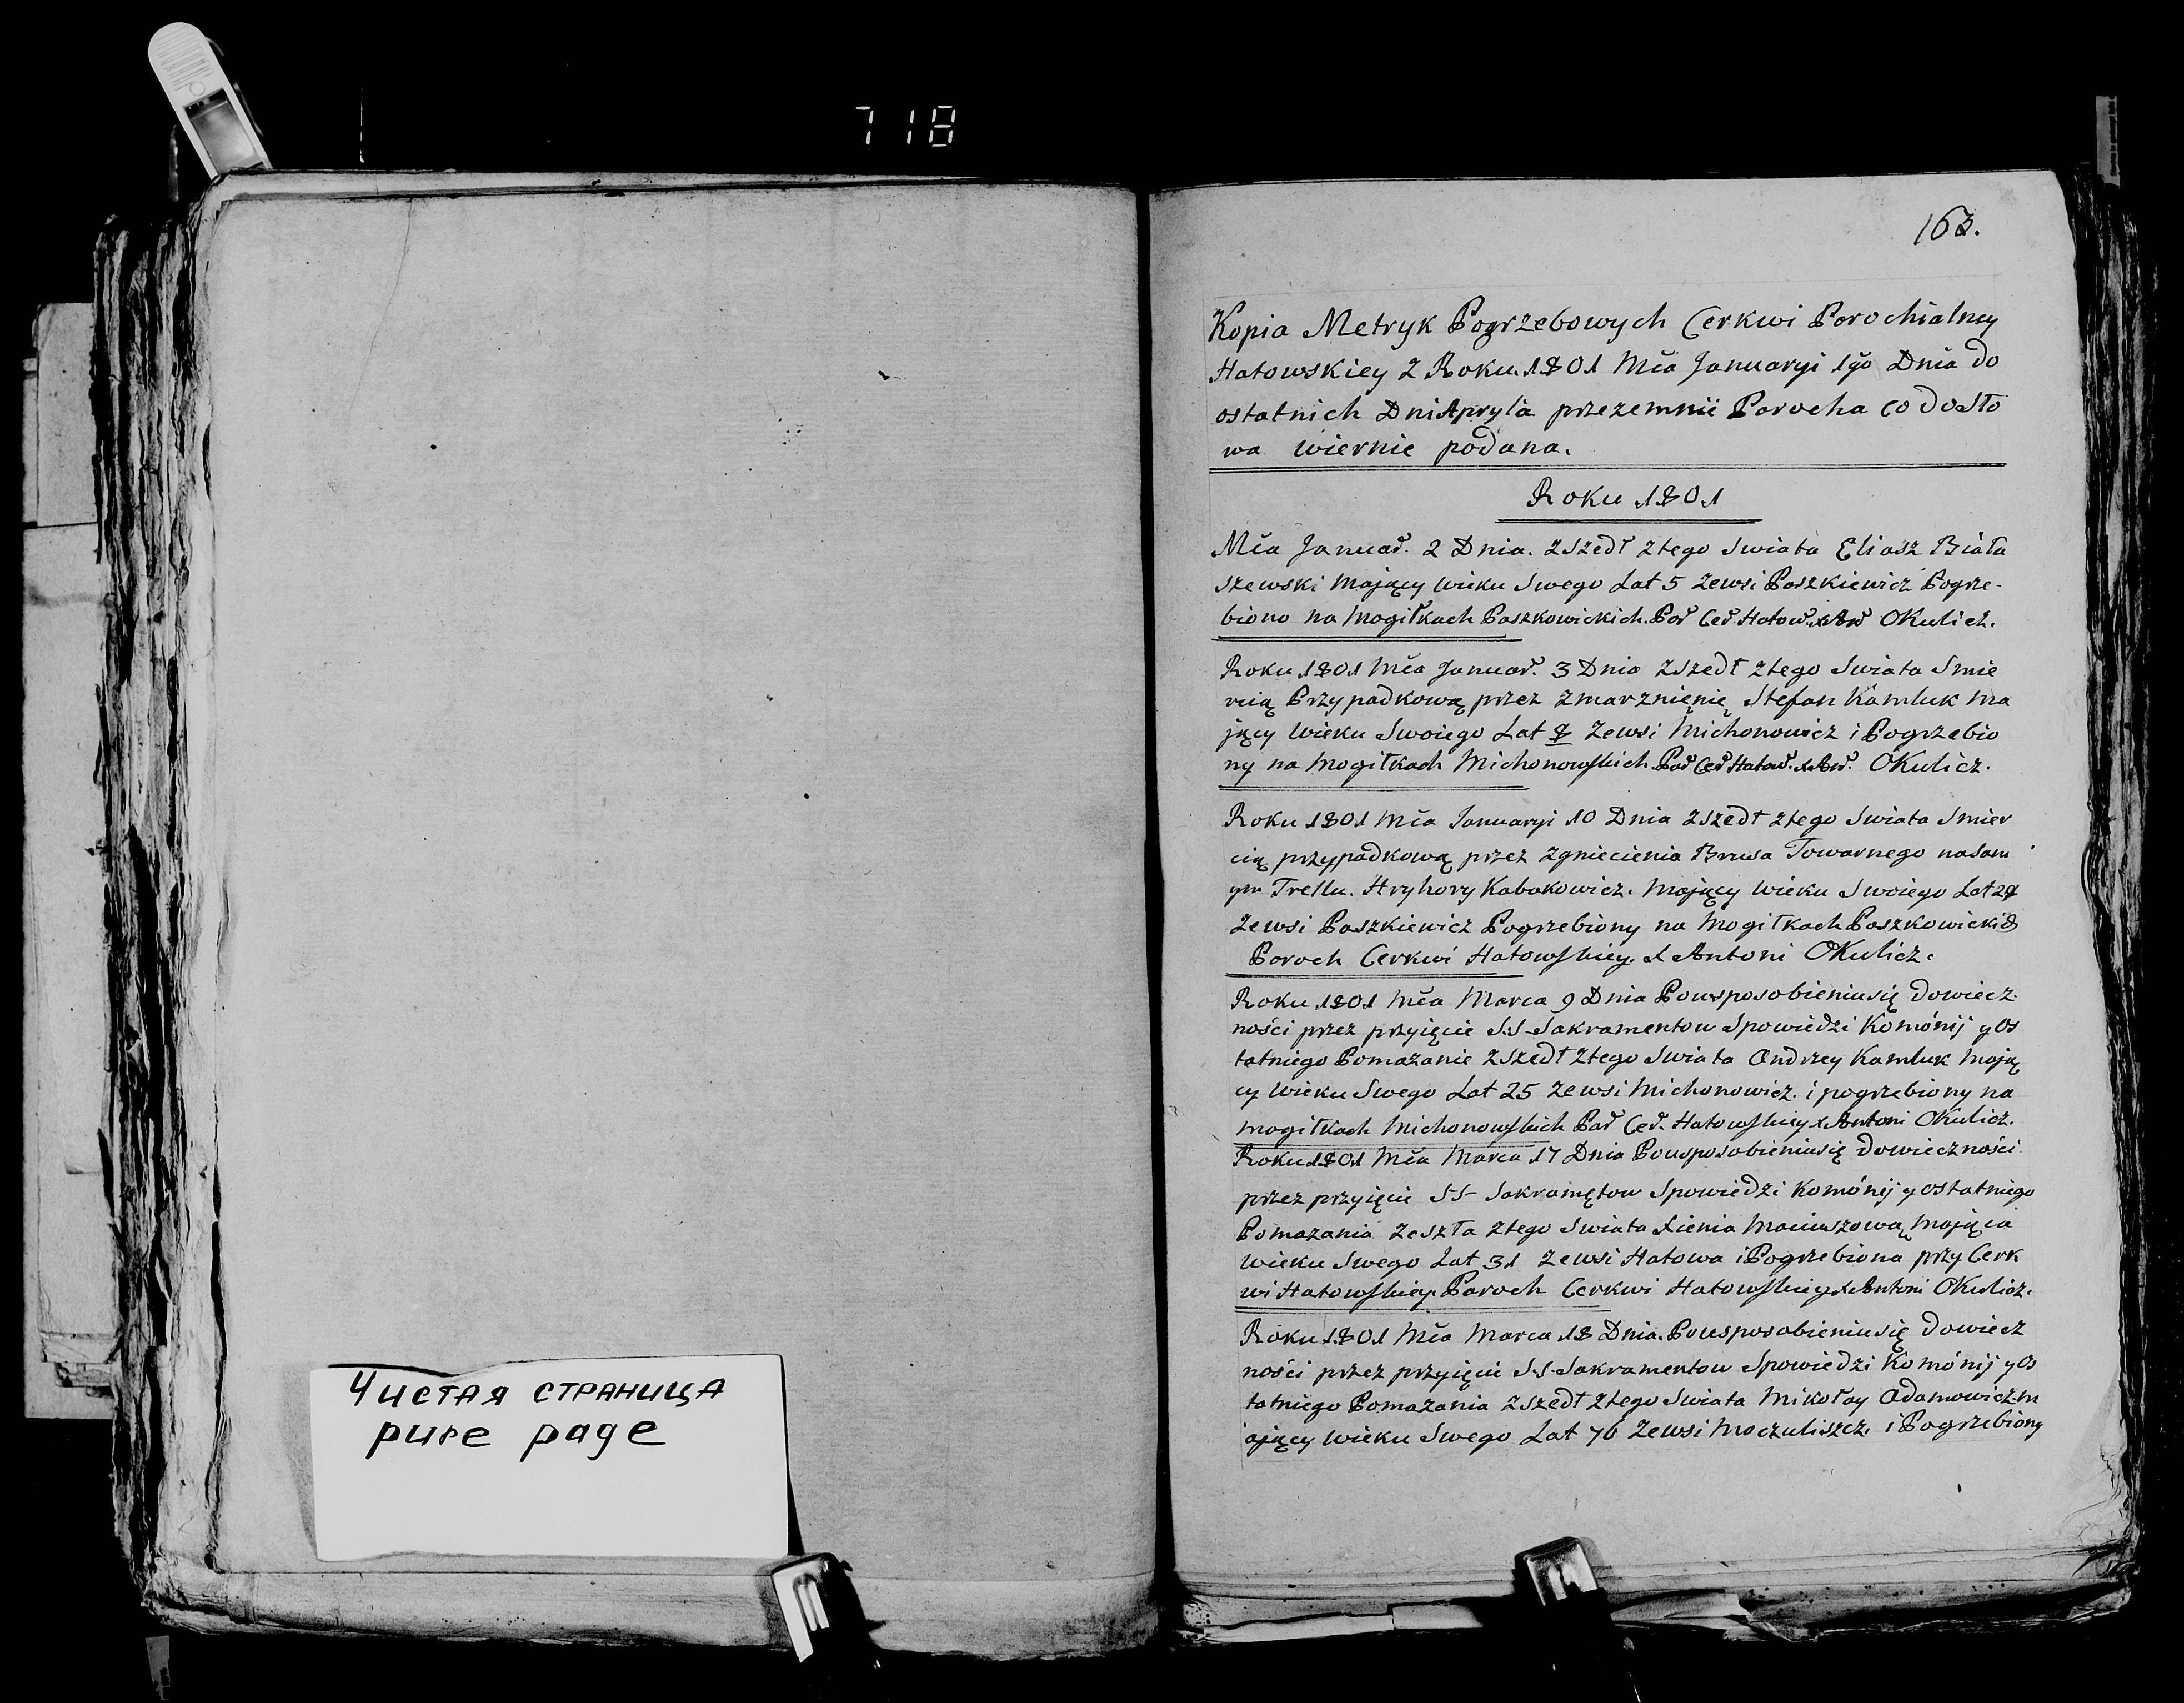 718
163.
Kopia Metryk Pogrzebowych Cerkwi Parochialney
Hatowskiey Z Roku 1801 Mča Januaryi 1go Dnia do
ostatnich Dni Apryla przezemnie Parocha co do sło
wa wiernie podana.
Roku 1801
Mča Januar. 2 Dnia. zszedł ztego Swiata Eliasz Biała
szewski Mający wieku Swego Lat 5 zewsi Paszkiewicz Pogrze-
biono na Mogiłkach Paszkowickich. Par Cer Hatow. X Ant Okulicz.
Roku 1801 Mča Januar. 3 Dnia zszedł ztego Swiata Smie
rcią Przypadkową przez zmarznięnię Stefan Kamluk ma
jący wieku Swoiego Lat 8 zewsi Michonowicz i Pogrzebio
ny na Mogiłkach Michonowskich Par Cer Hatow. X Ant. Okulicz.
Roku 1801 Mča Januaryi 10 Dnia zszedł ztego Swiata Smier
cią przypadkową przez zgniecienia Brusa Towarnego nasam
ym Hryhory Kabakowicz. Mający wieku Swoiego Lat
zewsi Paszkiewicz Pogrzebiony na Mogiłkach Paszkowickich
Paroch Cerkwi Hatowskiey X Antoni Okulicz.
Roku 1801 Mča Marca 9 Dnia Pousposobieniusię dowiecz
ności przez przyięcie S.S. Sakramentow Spowiedzi Komónij y Os
tatniego Pomazanie zszedł ztego Swiata Andrzey Kamluk Mają
cy wieku Swego Lat 25 zewsi Michonowicz. i pogrzebiony na
mogiłkach Michonowskich Par Cer. Hatowskiey X Antoni Okulicz.
Roku 1801 Mča Marca 17 Dnia Pousposobieniusię dowieczności
przez przyięcie SS Sakramętow Spowiedzi Komónij y ostatniego
Pomazania Zeszła ztego Swiata Xienia Maciuszową Mająca
wieku Swego Lat 31 zewsi Hatowa i Pogrzebiona przy Cerk
wi Hatowskiey. Paroch Cerkwi Hatowskiey X Antoni Okulicz.
Roku 1801 Mča Marca 18 Dnia. Pousposobieniusię dowiecz
ności przez przyięcie S.S. Sakramentow Spowiedzi Komónij y Os
tatniego Pomazania zszedł ztego Swiata Mikołay Adamowicz m
ający wieku Swego Lat 76 zewsi Moczuliszcz. i Pogrzebiony
Чистая страница
pure page